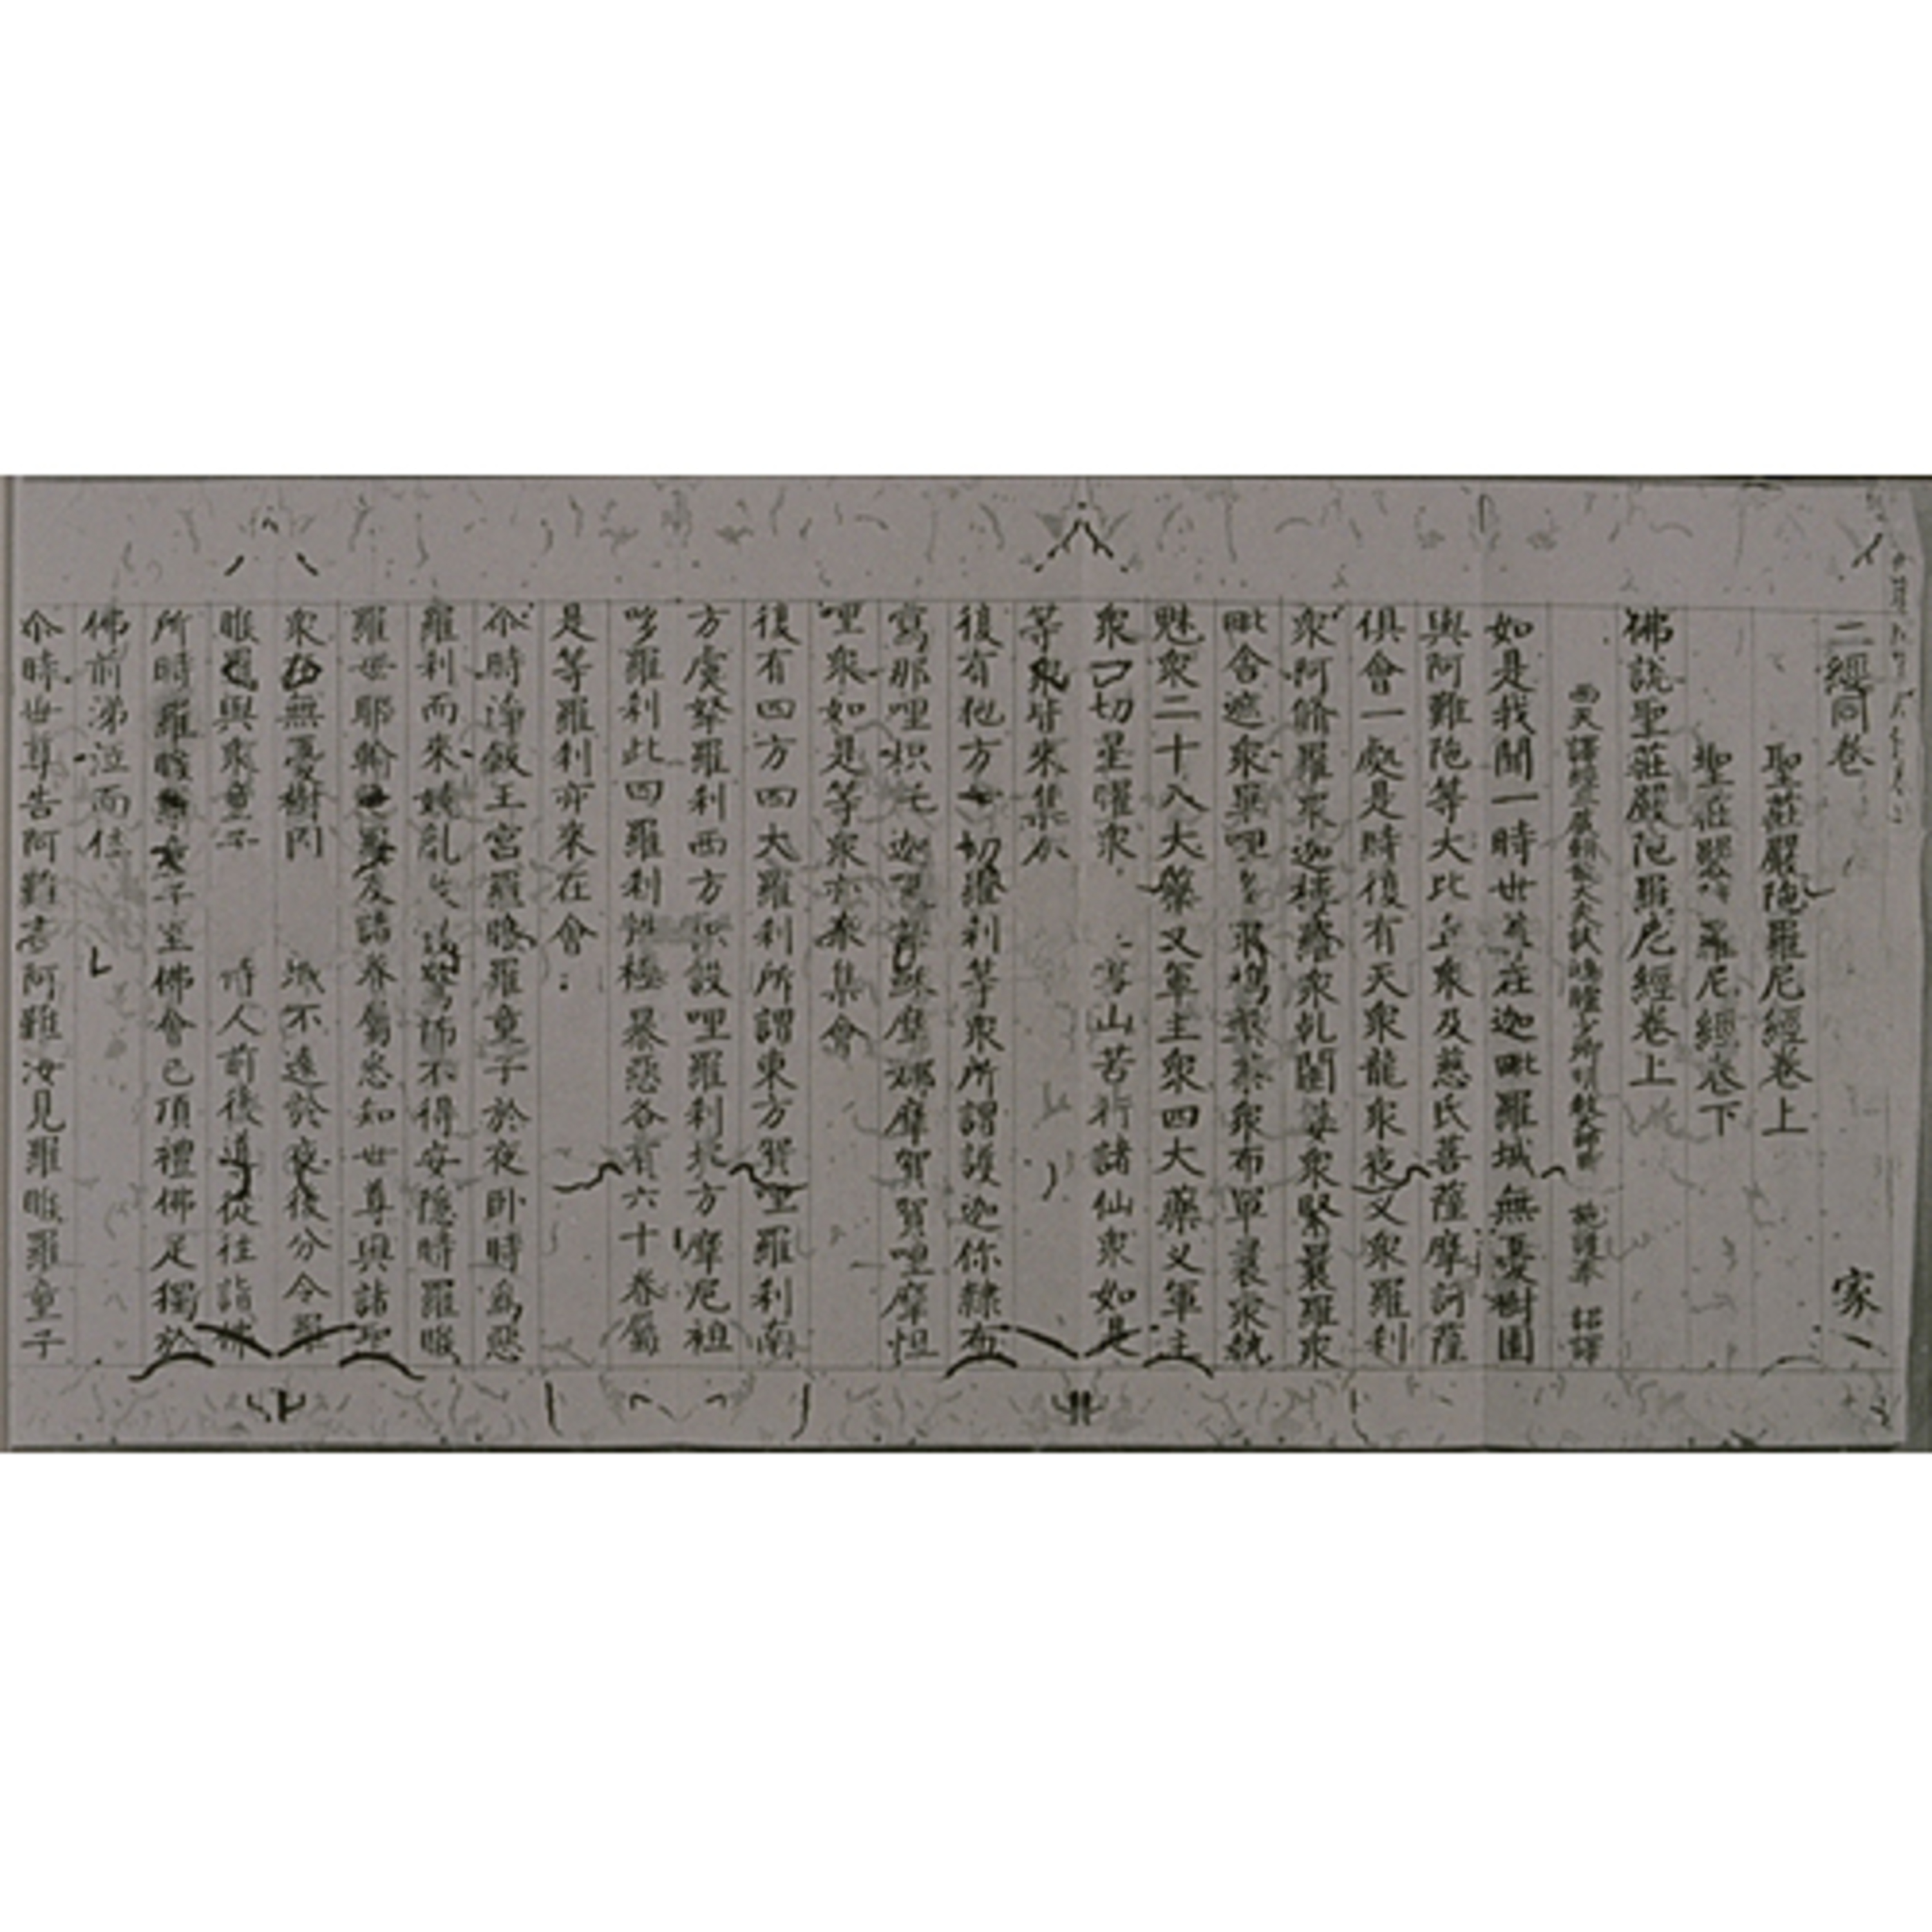 二經同卷 家
聖莊嚴陁羅尼經卷上
聖莊嚴 羅尼經卷下
佛說聖莊嚴陁羅尼經卷上
西天譯經三藏朝 大夫試鴻臚少卿 大師 施護奉 詔譯
如是我聞一時世尊在迦毗羅城無憂樹園
與阿難陁等大比丘衆及慈氏菩薩摩訶薩
俱會一處是時復有天衆龍衆夜叉衆羅刹
衆阿脩羅衆迦樓羅衆乹闥婆衆緊曩羅衆
毗舍遮衆畢哩 衆 衆布單曩衆
魅衆二十八大藥叉軍主衆四大藥叉軍主
衆一切星曜衆 雪山苦行諸仙衆如是
等衆皆來集
復有他方一切羅刹等衆所謂護迦你隸布
寫那哩 迦 摩 摩賀賀哩摩怛
哩衆如是等衆亦來集會
復有四方四大羅刹所謂東方賀哩羅刹南
方虞拏羅刹西方 設哩羅刹北方摩尼祖
羅刹此四羅刹 極暴惡各有六十眷屬
是等羅刹亦來在會
尒時淨飯王宮羅睺羅童子於夜卧時爲惡
羅刹而來嬈亂 驚怖不得安隱時羅睺
羅母耶輸 羅及諸眷屬悉知世尊與諸聖
衆 無憂樹 城不遠於夜後分令羅
睺羅與衆童子 侍人前後導從往詣佛
所時羅睺羅童子至佛會已頂禮佛足獨於
佛前涕泣而住
尒時世尊告阿難言阿難汝見羅睺羅童子